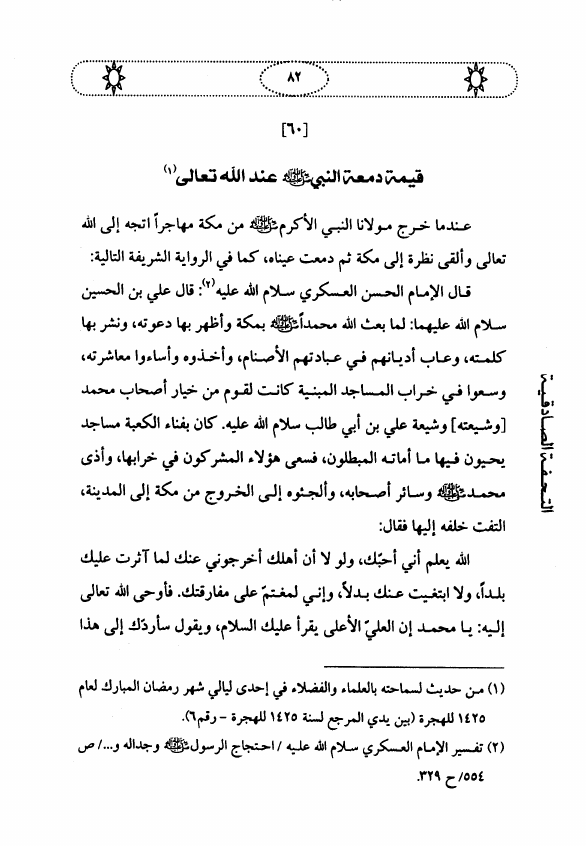 ٨٢
[٦٠]
قيمة دمعة النبي ﷺ عند الله تعالى(١)
عندما خرج مولانا النبي الأكرم ﷺ من مكة مهاجراً اتجه إلى الله
تعالى وألقى نظرة إلى مكة ثم دمعت عيناه، كما في الرواية الشريفة التالية:
قال الإمام الحسن العسكري سلام الله عليه(٢): قال علي بن الحسين
سلام الله عليهما: لما بعث الله محمداً ﷺ بمكة وأظهر بها دعوته، ونشر بها
كلمته، وعاب أديانهم في عبادتهم الأصنام، وأخذوه وأساءوا معاشرته،
وسعوا في خراب المساجد المبنية كانت لقوم من خيار أصحاب محمد
[وشيعته] وشيعة علي بن أبي طالب سلام الله عليه. كان بفناء الكعبة مساجد
يحيون فيها ما أماته المبطلون، فسعى هؤلاء المشركون في خرابها، وأذى
محمد ﷺ وسائر أصحابه، وألجئوه إلى الخروج من مكة إلى المدينة،
التفت خلفه إليها فقال:
الله يعلم أني أحبّك، ولو لا أن أهلك أخرجوني عنك لما آثرت عليك
بلداً، ولا ابتغيت عنك بدلاً، وإني لمغتمّ على مفارقتك. فأوحى الله تعالى
إليه: يا محمد إن العليّ الأعلى يقرأ عليك السلام، ويقول سأردّك إلى هذا
(١) من حديث لسماحته بالعلماء والفضلاء في إحدى ليالي شهر رمضان المبارك لعام
١٤٢٥ للهجرة (بين يدي المرجع لسنة ١٤٢٥ للهجرة - رقم٦).
(٢) تفسير الإمام العسكري سلام الله عليه / احتجاج الرسول ﷺ وجداله و.../ ص
٥٥٤/ ح ٣٢٩.
التحفة الصادقية